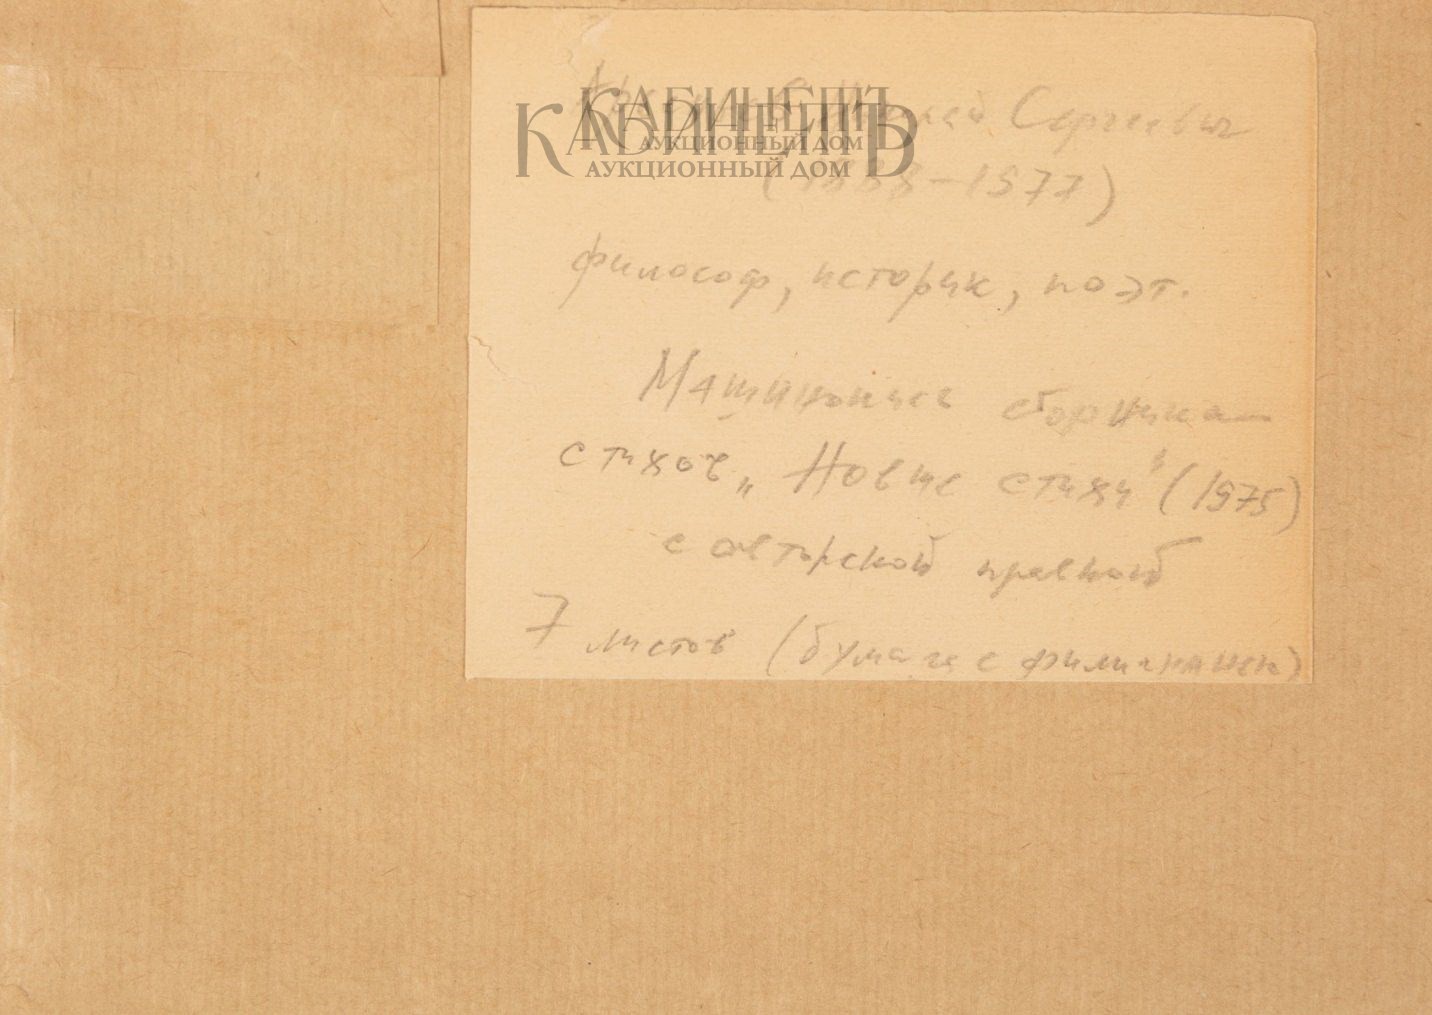 Арсеньев, Николай Сергеевич
КАБИНЕТЪ
АУКЦИОННЫЙ ДОМ
КАБИНЕТЪ
АУКЦИОННЫЙ ДОМ
(1888-1977)
философ, историк, поэт.
Машинопись сборника
стихов „Новые стихи“ (1975)
с авторской правкой
7 листов (бумага с филигранью)